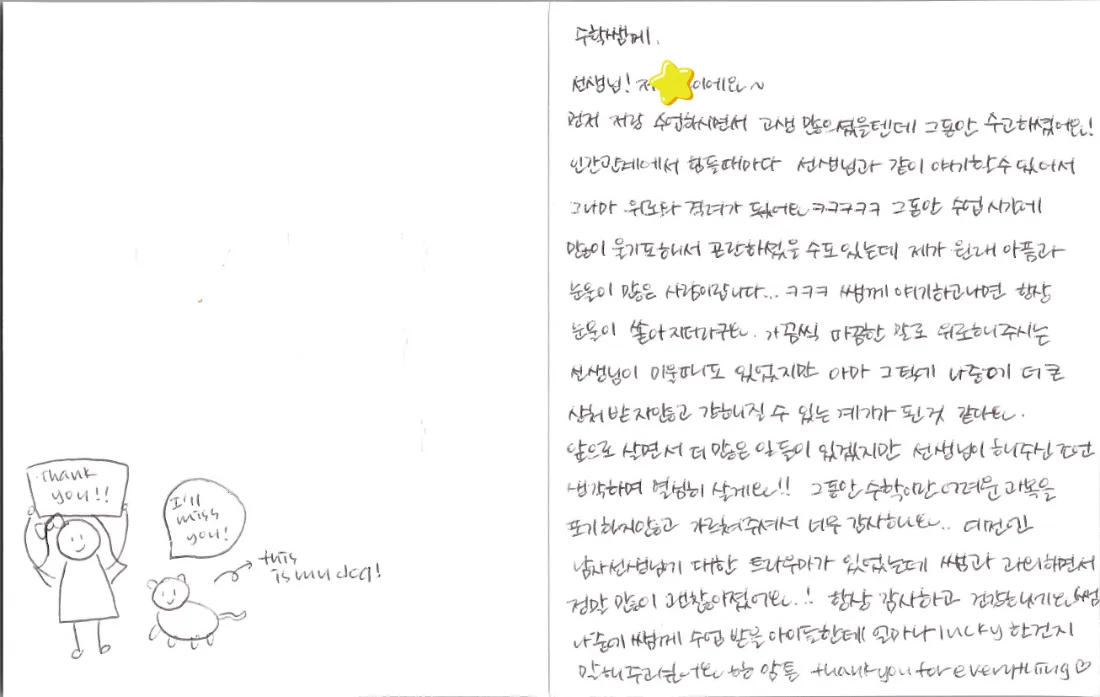 Thank
you!!
I'll
miss
you!
this
is my dog!
수학쌤께.
선생님! 저 이에요~
먼저 저랑 수업하시면서 고생 많으셨을텐데 그동안 수고하셨어요!
인간관계에서 힘들때마다 선생님과 같이 얘기할수 있어서
그나마 위로와 격려가 됐어요 ㅋㅋㅋㅋㅋ 그동안 수업 시간에
많이 울기도해서 곤란하셨을 수도 있는데 제가 원래 아픔과
눈물이 많은 사람이랍니다... ㅋㅋㅋ 쌤께 얘기하고나면 항상
눈물이 쏟아지더라구요. 가끔씩 따끔한 말로 위로해주시는
선생님이 미울때도 있었지만 아마 그덕에 나중에 더 큰
상처 받지않고 강해질 수 있는 계기가 된 것 같아요.
앞으로 살면서 더 많은 일들이 있겠지만 선생님이 해주신 조언
생각하며 열심히 살게요!! 그동안 수학이란 어려운 과목을
포기하지않고 가르쳐주셔서 너무 감사해요..
남자선생님께 대한 트라우마가 있었는데 쌤과 과외하면서
정말 많이 괜찮아졌어요..! 항상 감사하고 건강하세요 쌤
나중에 쌤께 수업 받을 아이들한테 얼마나 lucky 한건지
말해주고싶네요 thank you for everything♡